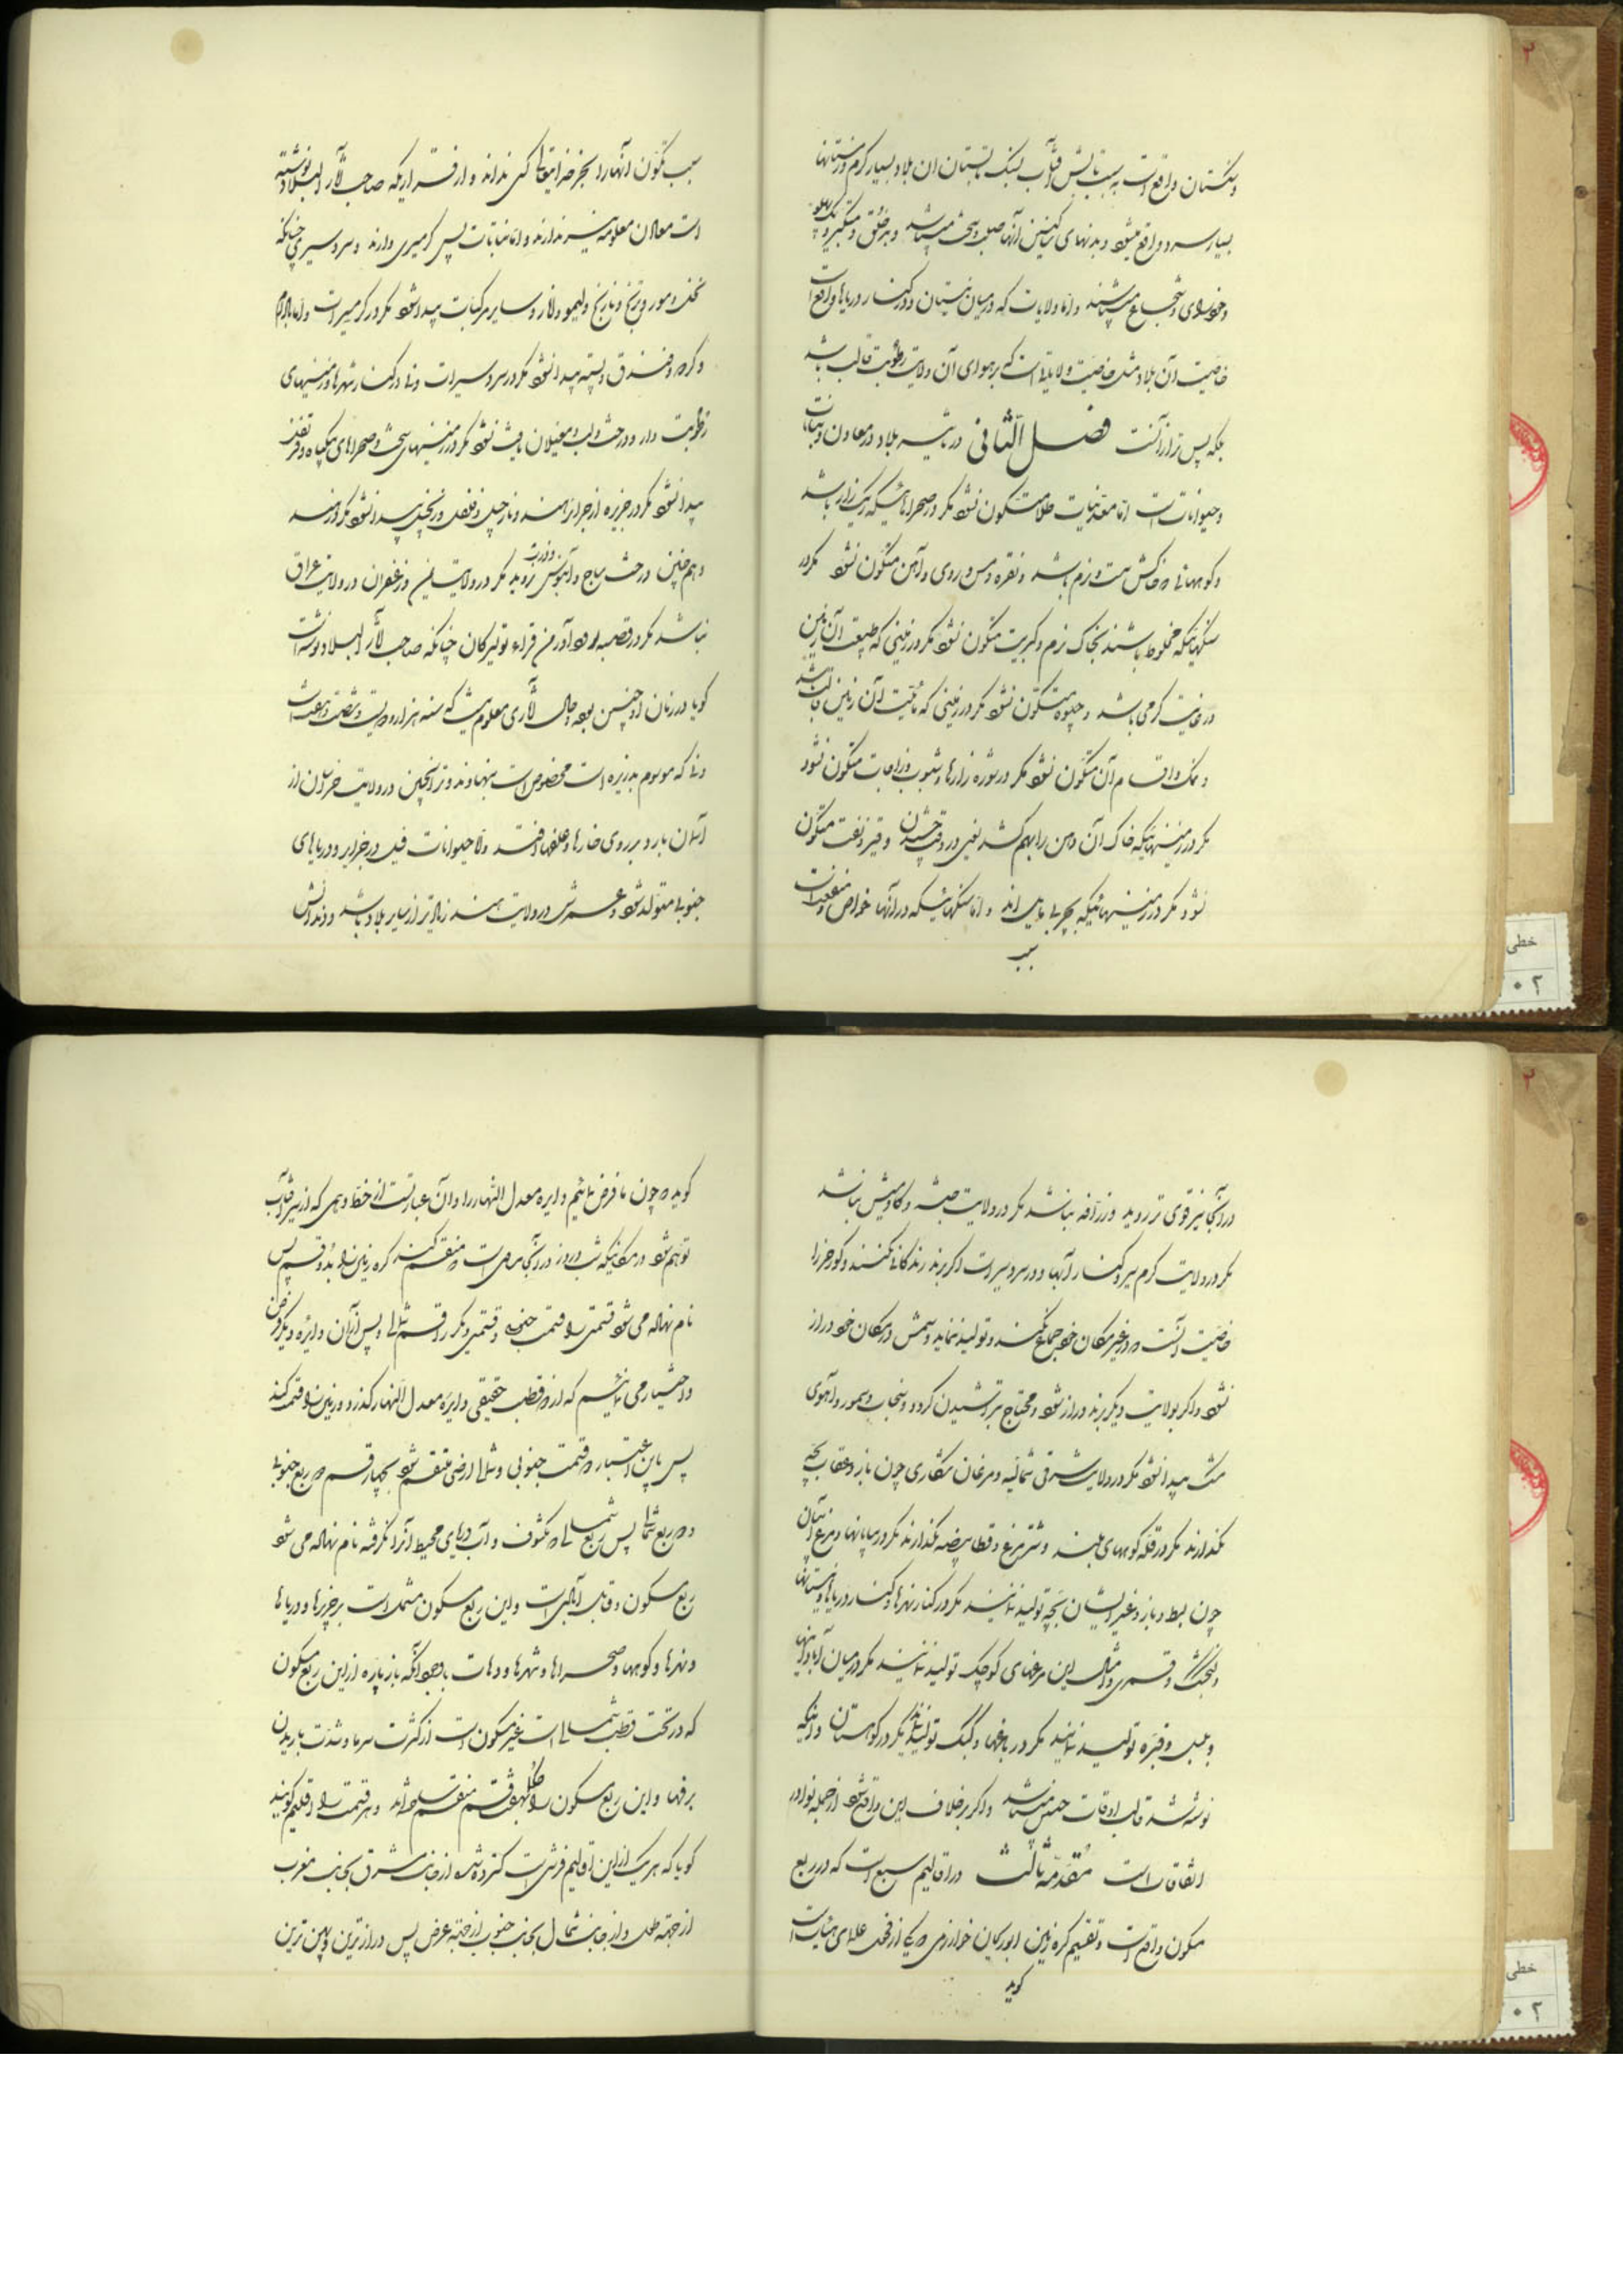 وسنگستان واقع است بسبب تابش آفتاب بسنگ تابستان آن بلاد بسیار گرم و زمستانها
بسیار سرد واقع میشود و بدنهای ساکنین آنها صلب و سخت میباشد و بدخلق و متکبر و
و شجاع میباشند و اما ولایات که در میان نیستان و در کنار دریاها واقع است
خاصیت آن بلاد مثل خاصیت ولایاتی است که بر هوای آن ولایت رطوبت غالب باشد
بلکه پس تر از آنست فصل الثانی در تاثیر بلاد در معادن و نباتات
و حیوانات است اما معدنیات طلا متکون نشود مگر در صحراهائیکه ریگ زار باشد
و کوههائی که خاکش سست و نرم باشد و نقره و مس و روی و آهن متکون نشود مگر در
سنگهائیکه مخلوط باشند بخاک نرم و کبریت متکون نشود مگر در زمینی که طبیعت آن زمین
در غایت گرمی باشد و جیوه متکون نشود مگر در زمینی که مائیت آن زمین غالب باشد
و نمک و اقسام آن متکون نشود مگر در شوره زارها و شبوب و زاجات متکون نشود
مگر در زمینهائیکه خاک آن دهن را بهم کشد یعنی در وقت چشیدن و قیر و نفت متکون
نشود مگر در زمینهائیکه بچربی مایل اند و اما سنگهائیکه در آنها خواص و منفعت است
سبب
سبب تکون آنها را بجز خدایتعالی کسی نداند و از قراریکه صاحب آثار البلاد نوشته
است معادن معلومه نیز ندارند و اما نباتات پس گرمسیری دارند و سردسیری چنانکه
نخل و موز و ترنج و نارنج و لیمو و انار و سایر مرکبات پیدا نشود مگر در گرمسیرات و اما بادام
و گردو و فندق و پسته پیدا نشود مگر در سردسیرات و نی در کنار نهرها و زمینهای
رطوبت دار و درخت و مغیلان یافت نشود مگر در زمینهای سخت و صحراهای بیگیاه و قرنفل
پیدا نشود مگر در جزیره از جزایر هند و نارجیل و فلفل و زنجبیل پیدا نشود مگر در هند
و هم چنین درخت ساج و آبنوس و ورس نروید مگر در ولایت یمن و زعفران در ولایت عراق
نباشد مگر در قصبه رودآور من قراء تویسرکان چنانکه صاحب آثار البلاد نوشته است
گویا در زمان او چنین بوده و حال آثاری معلوم نیست که سنه هزار و دویست و شصت و هفت است
و نی که موسوم بذریره است مخصوص است بنهاوند و ترنجبین در ولایت خراسان از
آسمان بارد بر روی خارها و علفها افتد و اما حیوانات فیل در جزایر و دریاهای
جنوبی متولد شود و عمرش در ولایت هند زیادتر از سایر بلاد باشد و دندانش
در آنجا نیز قوی تر روید و زرافه نباشد مگر در ولایت حبشه و گاومیش نباشد
مگر در ولایت گرم سیر و کنار آبها و در سردسیرات اگر برند زندگانی نکنند و گورخر را
خاصیت آنست که در غیر مکان خود جماع نکند و تولید ننماید و سمش در مکان خود دراز
نشود و اگر بولایت دیگر برند دراز شود و محتاج بتراشیدن گردد و سنجاب و سمور و آهوی
مشک پیدا نشود مگر در ولایت شرقی شمالیه و مرغان شکاری چون باز و عقاب بچه
نگذارند مگر در قله کوههای بلند و شترمرغ و قطا بیضه نگذارند مگر در بیابانها و مرغ آبیان
چون بط و باز و غیر ایشان بچه تولید نمانند مگر در کنار نهرها و کنار دریاها و نیستانها
و گنجشک و قمری و امثال این مرغهای کوچک تولید ننمایند مگر در میان آبادانیها
و بلبل و قبره تولید ننمایند مگر در باغها و کبک تولید ننماید مگر در کوهستان و اینکه
نوشته شد غالب اوقات چنین میباشد و اگر بر خلاف این واقع شود از جمله نوادر
اتفاقات است مقدمه ثالث در اقالیم سبع است که در ربع
مسکون واقع است و تقسیم کره زمین ابوریحان خوارزمی که یکی از فحول علمای هیئت است
گوید
گوید که چون ما فرض نمائیم دایره معدل النهار را و آن عبارتست از خط وهمی که از سیر آفتاب
توهم شود در مکانیکه شب و روز در آنجا مساوی است منقسم کند کره زمین را بدو قسم پس
نام نهاده می شود قسمتی را قسمت جنوبی و قسمتی دیگر را قسم شمالی و پس از آن دایره دیگر فرض
و اختیار می نمائیم که از دو قطب حقیقی دایره معدل النهار گذرد و زمین را دو قسمت کند
پس باین اعتبار دو قسمت جنوبی و شمالی ارضی منقسم شود بچهار قسم دو ربع جنوبی
و دو ربع شمالی پس ربع شمالی که مکشوف و آب دریای محیط آنرا نگرفته نام نهاده می شود
ربع مسکون و قابل آبادیست و این ربع مسکون مشتمل است بر جزیرها و دریاها
و نهرها و کوهها و صحراها و شهرها و دهات با وجود آنکه باز پاره از این ربع مسکون
که در تحت قطب شمالی است غیر مسکون است از کثرت سرما و شدت باریدن
برفها و این ربع مسکون را بهفت قسم منقسم نموده اند و هر قسمت را اقلیم گویند
گویا که هر یک از این اقالیم فرشی است گسترده شده از جانب مشرق بجانب مغرب
از جهة طول و از جانب شمال بجانب جنوب از جهة عرض پس درازترین و پهن ترین
خطی
۰۲